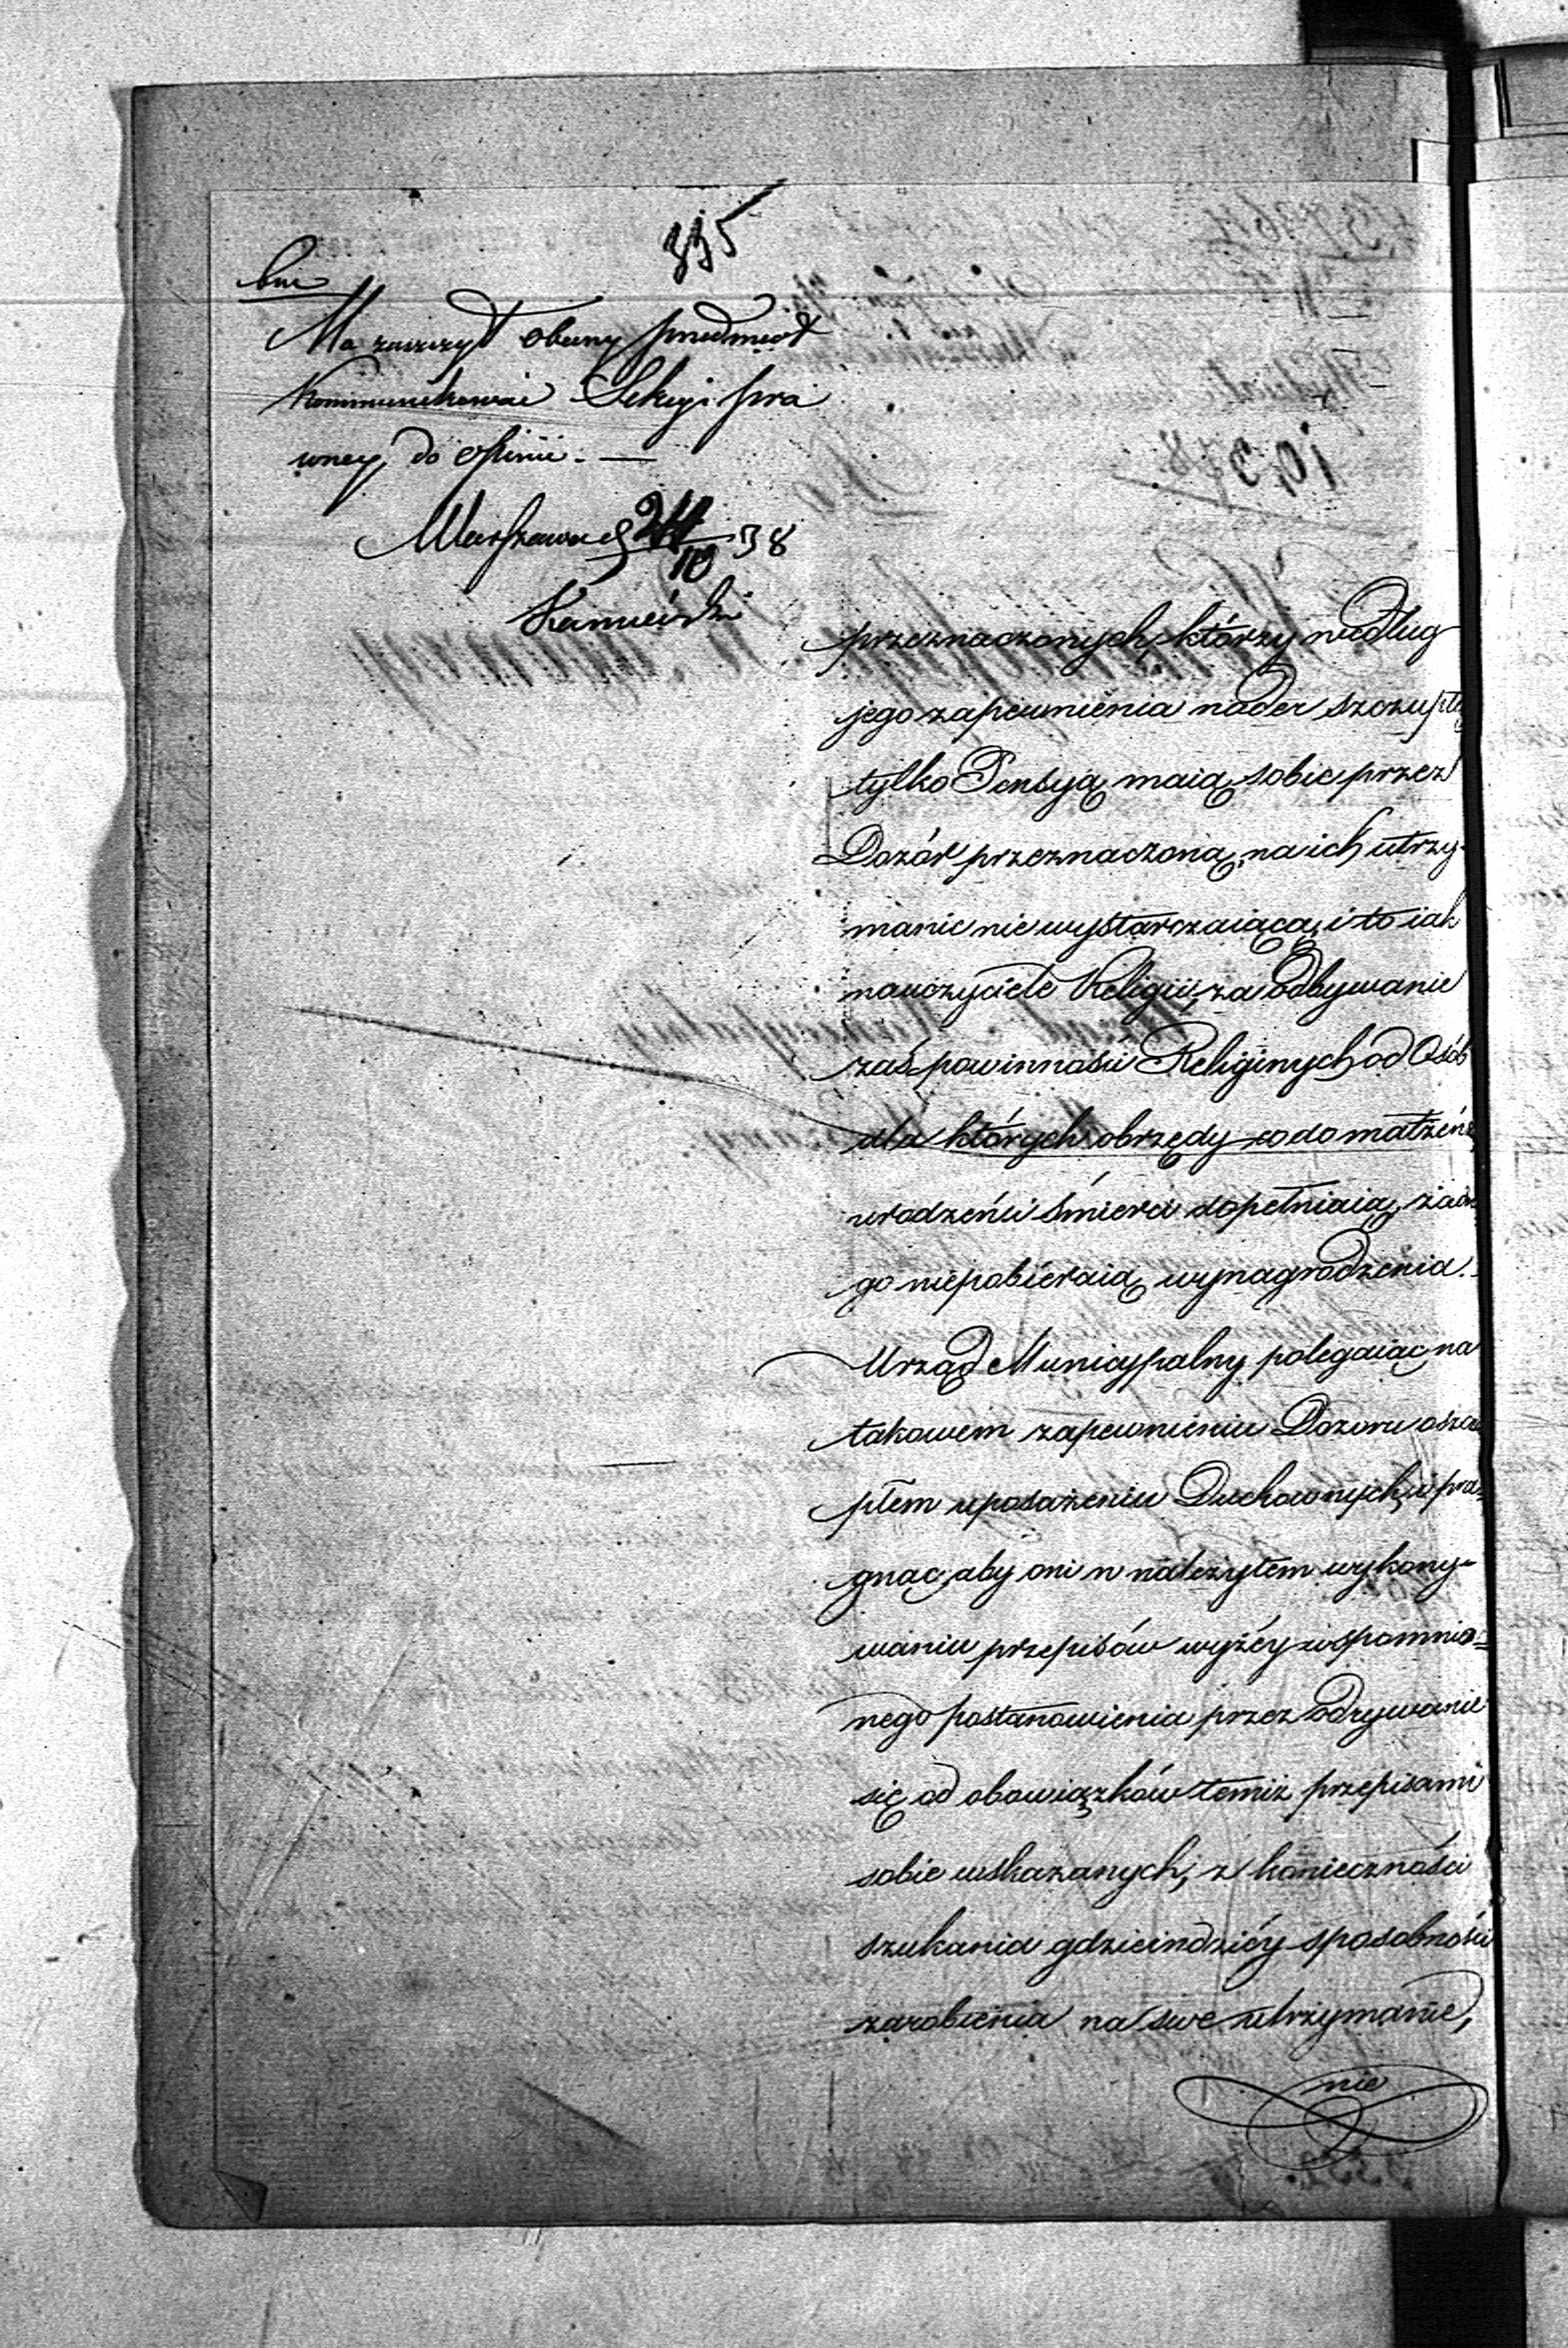 335
Ma zaszczyt obecny przedmiot
Kommunikować Sekcyi pra
wney do opinii. —
Warszawa d 24/10 38
Kamieński
przeznaczonych, którzy według
jego zapewnienia nader szczupłą
tylko Pensyą maią sobie przez
Dozór przeznaczoną, na ich utrzy-
manie nie wystarczaiącą, i to iak
nauczyciele Religii, za odbywanie
zaś powinności Religinych od Osób
dla których obrzędy co do małżeń
urodzeń i śmierci dopełniaią, żadne
go niepobieraią wynagrodzenia.
Urząd Municypalny polegaiąc na
takowem zapewnieniu Dozoru o szczu
płem uposażeniu Duchownych, i pra-
gnąc, aby oni w należytem wykony-
waniu przepisów wyżéy wspomnio-
nego postanowienia przez odrywanie
się od obowiązków temiż przepisami
sobie wskazanych, z konieczności
szukania gdzieindziéy sposobności
zarobienia na swe utrzymanie,
nie